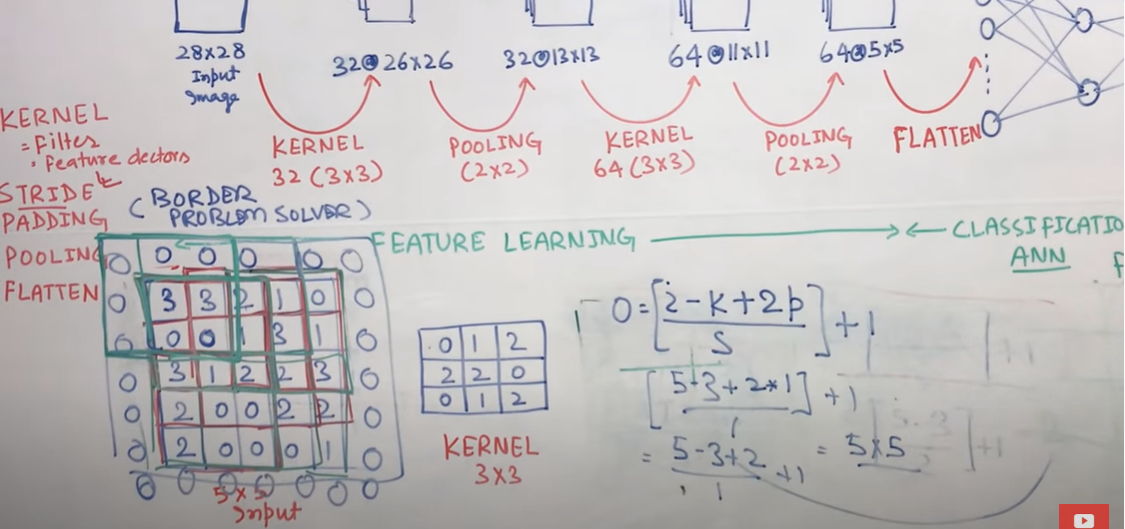 28x28
Input
Image
32@26x26
32@13x13
64@11x11
64@5x5
KERNEL
32 (3x3)
POOLING
(2x2)
KERNEL
64 (3x3)
POOLING
(2x2)
FLATTEN
KERNEL
= Filter
• feature dectors
STRIDE
PADDING
(BORDER
PROBLEM SOLVER)
POOLING
FLATTEN
FEATURE LEARNING
CLASSIFICATIO
ANN
F
0 0 0 0 0 0
0 3 3 2 1 0 0
0 0 0 1 3 1 0
0 3 1 2 2 3 0
0 2 0 0 2 2 0
0 2 0 0 0 1 0
0 0 0 0 0 0 0
5x5
Input
0 1 2
2 2 0
0 1 2
KERNEL
3x3
O = [i-K+2p/S] + 1
[5-3+2*1/1] + 1
= 5-3+2/1 + 1 = 5x5